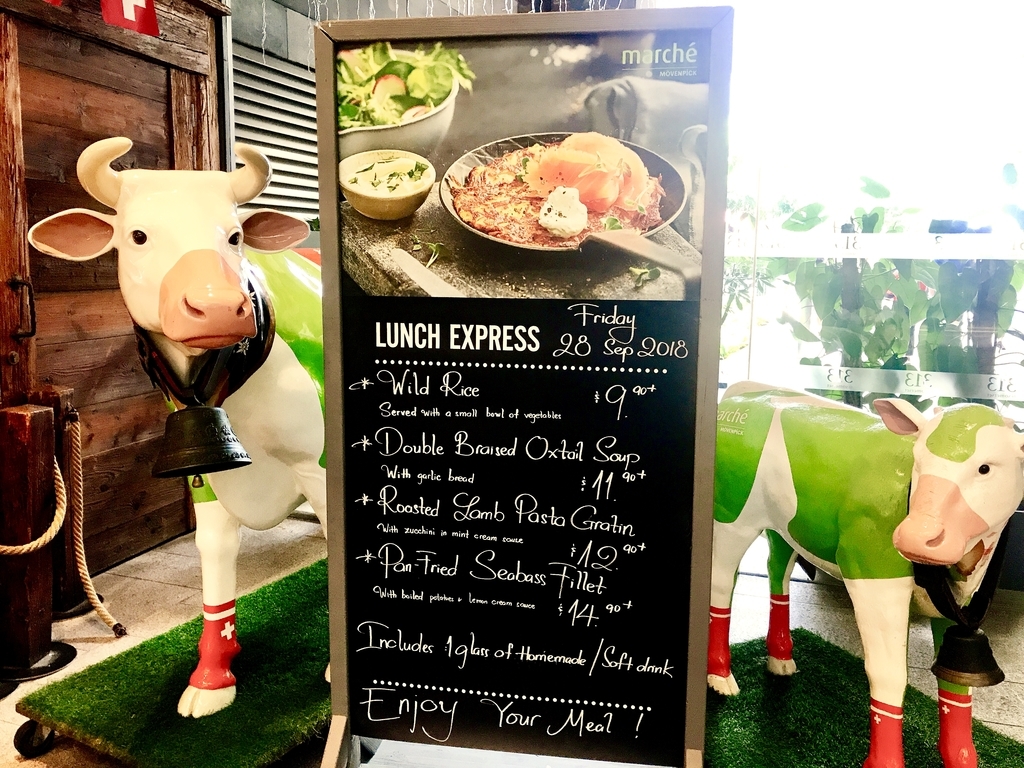 marché
MÖVENPICK
LUNCH EXPRESS
Friday
28 Sep 2018
* Wild Rice $9.90+
Served with a small bowl of vegetables
* Double Braised Oxtail Soup
With garlic bread $11.90+
* Roasted Lamb Pasta Gratin
With zucchini in mint cream sauce $12.90+
* Pan-Fried Seabass Fillet
With boiled potatoes & lemon cream sauce $14.90+
Includes :1 glass of Homemade/Soft drink
Enjoy Your Meal !
marché
MÖVENPICK
313 313 313